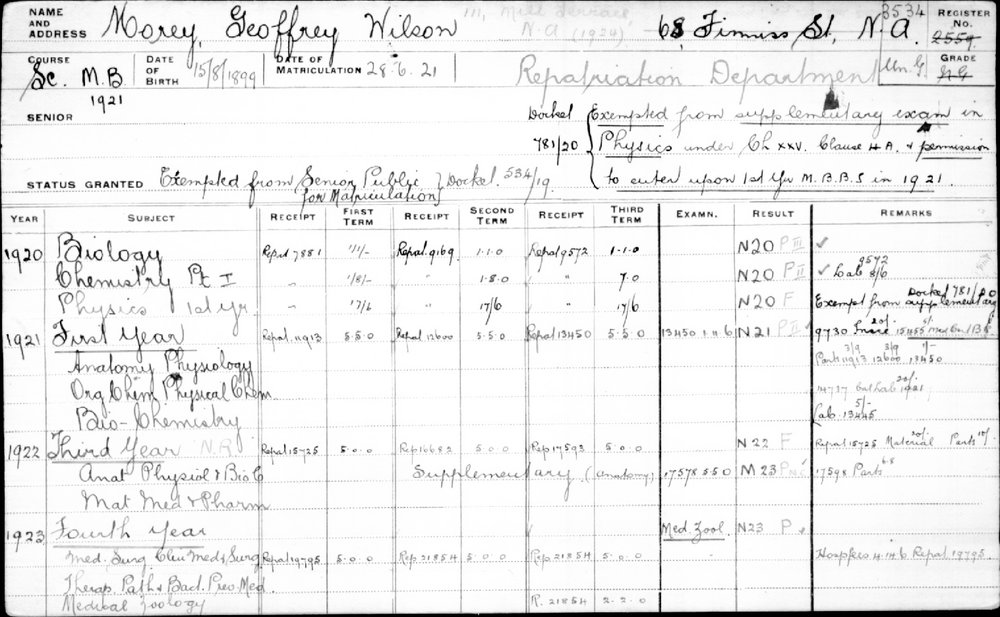 NAME AND ADDRESS Morey, Geoffrey Wilson 111, Mill Terrace, N.A. (1924) 68, Finniss St, N.A. 3534 REGISTER No. 2559
COURSE Sc. M.B 1921 DATE OF BIRTH 15/8/1899 DATE OF MATRICULATION 28.6.21 Repatriation Department Un. G. GRADE
SENIOR
Docket 781/20 { Exempted from supplementary exam in
Physics under Ch XXV. Clause 4 A. & permission
to enter upon 1st Yr M.B.B.S in 1921.
STATUS GRANTED Exempted from Senior Public for Matriculation } Docket 534/19.
YEAR SUBJECT RECEIPT FIRST TERM RECEIPT SECOND TERM RECEIPT THIRD TERM EXAMN. RESULT REMARKS
1920 Biology Repat 7881 1/1/- Repat. 9169 1.1.0 Repat 9572 1.1.0 N20 P III ✓
Chemistry Pt I " 1/8/- " 1.8.0 " 7.0 N20 P II ✓ Lab 9572 8/6
Physics 1st yr. " 17/6 " 17/6 " 17/6 N20 F Exempt from supplementary Docket 781/20
1921 First Year Repat. 11913 5.5.0 Repat 12600 5.5.0 Repat 13450 5.5.0 13450 1.11.6 N21 P II 9730 20/- 15455 5/-
Anatomy Physiology Parts 11913 3/9 12600 3/9 13450 1/-
Org Chem Physical Chem. 14737 Lab 20/- 1921
Bio-Chemistry Lab. 13445 5/-
1922 Third Year N.R. Repat 15725 5.0.0 Rep 16682 5.0.0 Rep 17593 5.0.0 N22 F Repat 15725 Material 20/- Parts 10/-
Anat Physiol & Bio C Supplementary (anatomy) 17578 5.5.0 M23 P 17598 Parts 6.8
Mat Med & Pharm
1923 Fourth Year Med. Zool. N23 P
Med. Surg. Clin Med & Surg Repat 19795 5.0.0 Rep 21854 5.0.0 Rep 21854 5.0.0 Hospfees 4.14.6 Repat 19795.
Therap. Path & Bact. Prev. Med.
Medical Zoology R. 21854 2.2.0